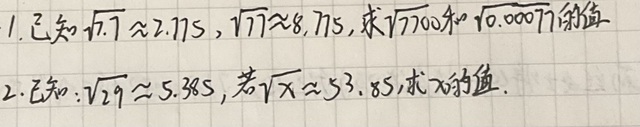 1.已知√7.7≈2.775,√77≈8.775,求√7700和√0.00077的值
2.已知:√29≈5.385,若√x≈53.85,求x的值.